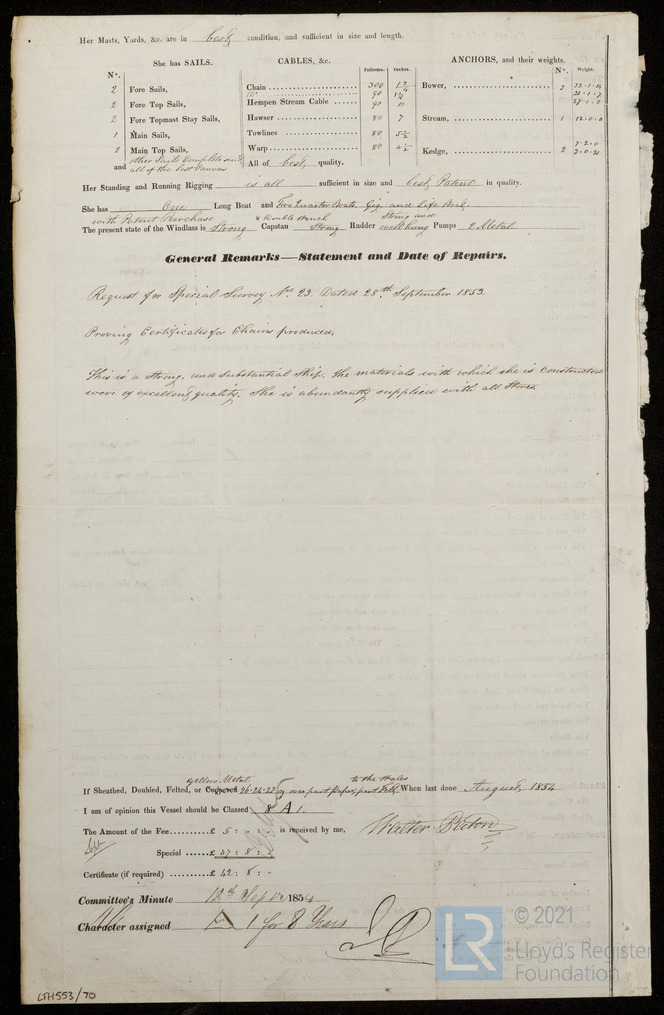 Her Masts, Yards, &c. are in best condition, and sufficient in size and length.
She has SAILS.
CABLES, &c.
ANCHORS, and their weights.
N°.
Fathoms.
Inches.
N°.
Weight.
2 Fore Sails,
2 Fore Top Sails,
2 Fore Topmast Stay Sails,
1 Main Sails,
2 Main Top Sails,
and other Sails Complete and
all of the best Canvas
Chain 300
D° 90
Hempen Stream Cable 90 10
Hawser 80 7
Towlines 80 5½
Warp 80 4½
All of best quality.
Bower, 3
Stream, 1 12.0.0
Kedge, 2
Her Standing and Running Rigging is all sufficient in size and best, Patent in quality.
She has One Long Boat and Two Quarter Boats, Gig and Life Boat,
with Patent Purchase & double winch Strong and
The present state of the Windlass is Strong Capstan Strong Rudder well hung Pumps 2 Metal
General Remarks—Statement and Date of Repairs.
Request for Special Survey N° 23. Dated 28th September 1853.
Proving Certificates for Chains produced.
This is a Strong, and Substantial Ship, the materials with which she is Constructed
were of excellent quality. She is abundantly supplied with all Stores.
yellow Metal to the Wales
If Sheathed, Doubled, Felted, or Coppered 26-24-22 oz over part paper, part Felt. When last done August, 1854
I am of opinion this Vessel should be Classed 8 A 1.
The Amount of the Fee.........£ 5 : : is received by me,
Special .....£ 37 : 8 : -
Certificate (if required) .........£ 42 : 8 : -
Committee's Minute 12th Septr 1854
Character assigned A 1 for 8 Years
LTH553/70
LR
© 2021
Lloyd's Register
Foundation